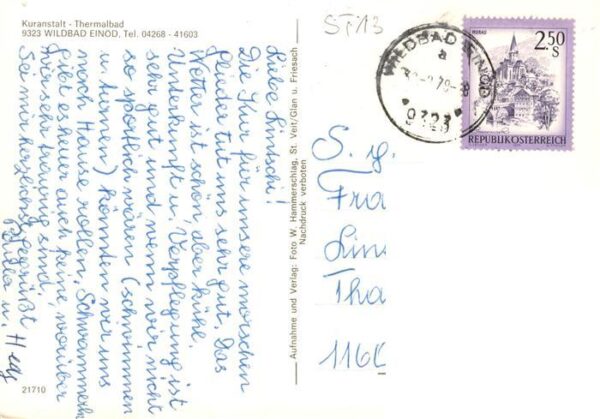 Kuranstalt - Thermalbad
9323 WILDBAD EINÖD, Tel. 04268 - 41603
Liebe Lintschi!
Die Kur für unsere morschen
Glieder tut uns sehr gut. Das
Wetter ist schön, aber kühle.
Unterkunft u. Verpflegung ist
sehr gut und wenn wir nicht
so sportlich wären (schwimmen
u. turnen) könnten wir uns
nach Hause rollen. Schwammerln
gibt es heuer auch keine, worüber
wir sehr traurig sind.
Sei mir herzlichst gegrüßt
u. Heg
21710
Aufnahme und Verlag: Foto W. Hammerschlag, St. Veit/Glan u. Friesach
Nachdruck verboten
ST13
WILDBAD EINÖD
a
9323
MURAU
2.50
S
REPUBLIK ÖSTERREICH
S. g.
Fra
Lin
Tha
116